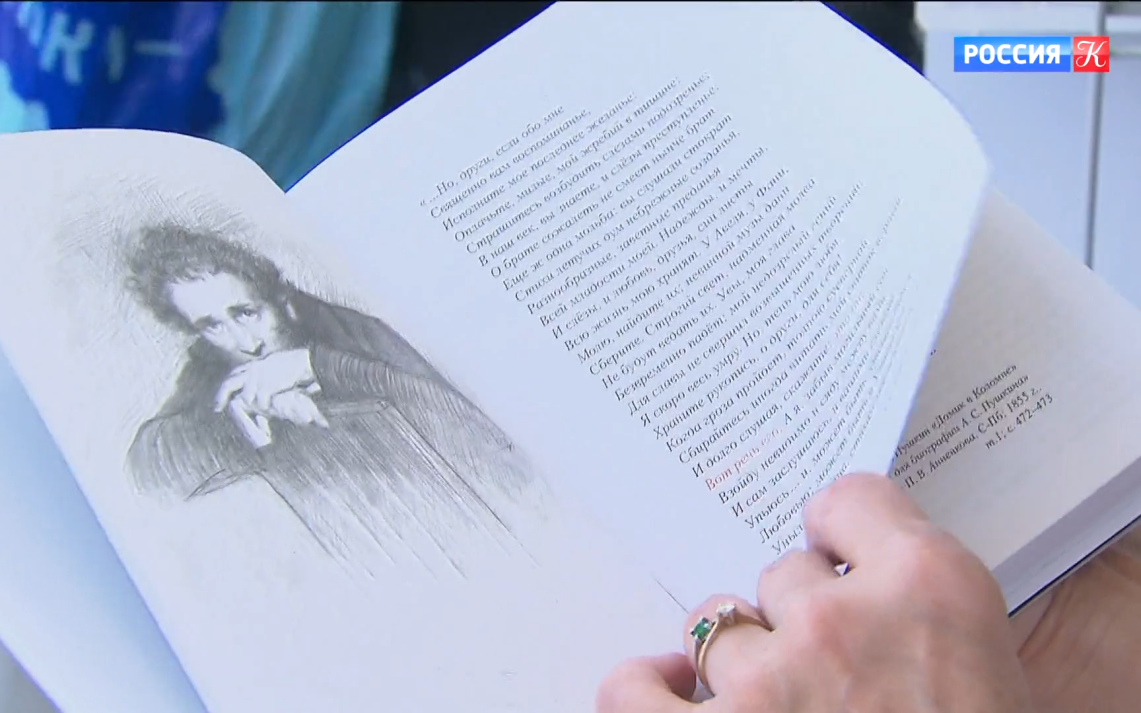 РОССИЯ К
«...Но, други, если обо мне
Священно вам воспоминанье,
Исполните мое последнее желанье:
Оплачьте, милые, мой жребий в тишине;
Страшитесь возбудить слезами подозренье;
В наш век, вы знаете, и слёзы преступленье:
О брате сожалеть не смеет ныне брат.
Еще ж одна мольба: вы слушали стократ
Стихи, летучих дум небрежные созданья,
Разнообразные, заветные преданья
Всей младости моей. Надежды, и мечты,
И слёзы, и любовь, друзья, сии листы
Всю жизнь мою хранят. У Авеля, у Фанни,
Молю, найдите их; невинной музы дани
Сберите. Строгий свет, надменная молва
Не будут ведать их. Увы, моя глава
Безвременно падёт: мой недозрелый гений
Для славы не свершил возвышенных творений;
Я скоро весь умру. Но, тень мою любя,
Храните рукопись, о други, для себя!
Когда гроза пройдет, толпою суеверной
Сбирайтесь иногда читать свиток верный
И долго слушая, скажите: это он;
Вот речь его. А я, забыв
Взойду невидимо и сяду
И сам заслушаюсь, и
Упьюсь... и, может быть,
Любовью; может быть,
Уныл
Пушкин «Домик в Коломне»
для биографии А. С. Пушкина»
П. В. Анненкова. С-Пб, 1855 г.,
т.1; с. 472–473